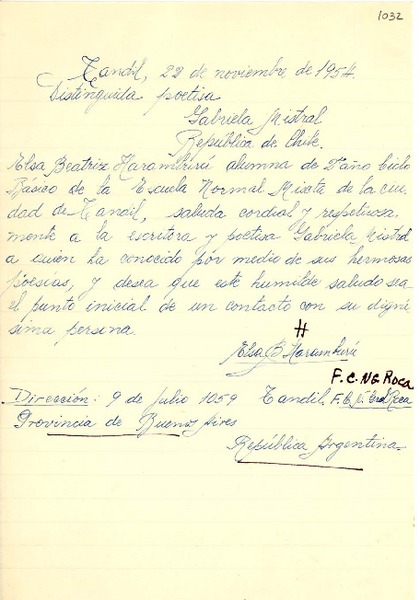 1032
Tandil, 22 de noviembre de 1954.
Distinguida poetisa
Gabriela Mistral
República de Chile.
Elsa Beatriz Haramburú alumna de 2º año Ciclo
Básico de la Escuela Normal Mixta de la ciu-
dad de Tandil, saluda cordial y respetuosa
mente a la escritora y poetisa Gabriela Mistral
a quien ha conocido por medio de sus hermosas
poesías, y desea que este humilde saludo sea
el punto inicial de un contacto con su digní
sima persona.
H
Elsa B. Haramburú
F.C.NG ROCA
Dirección: 9 de Julio 1059 Tandil, F.C.N. Gral Roca
Provincia de Buenos Aires
República Argentina.